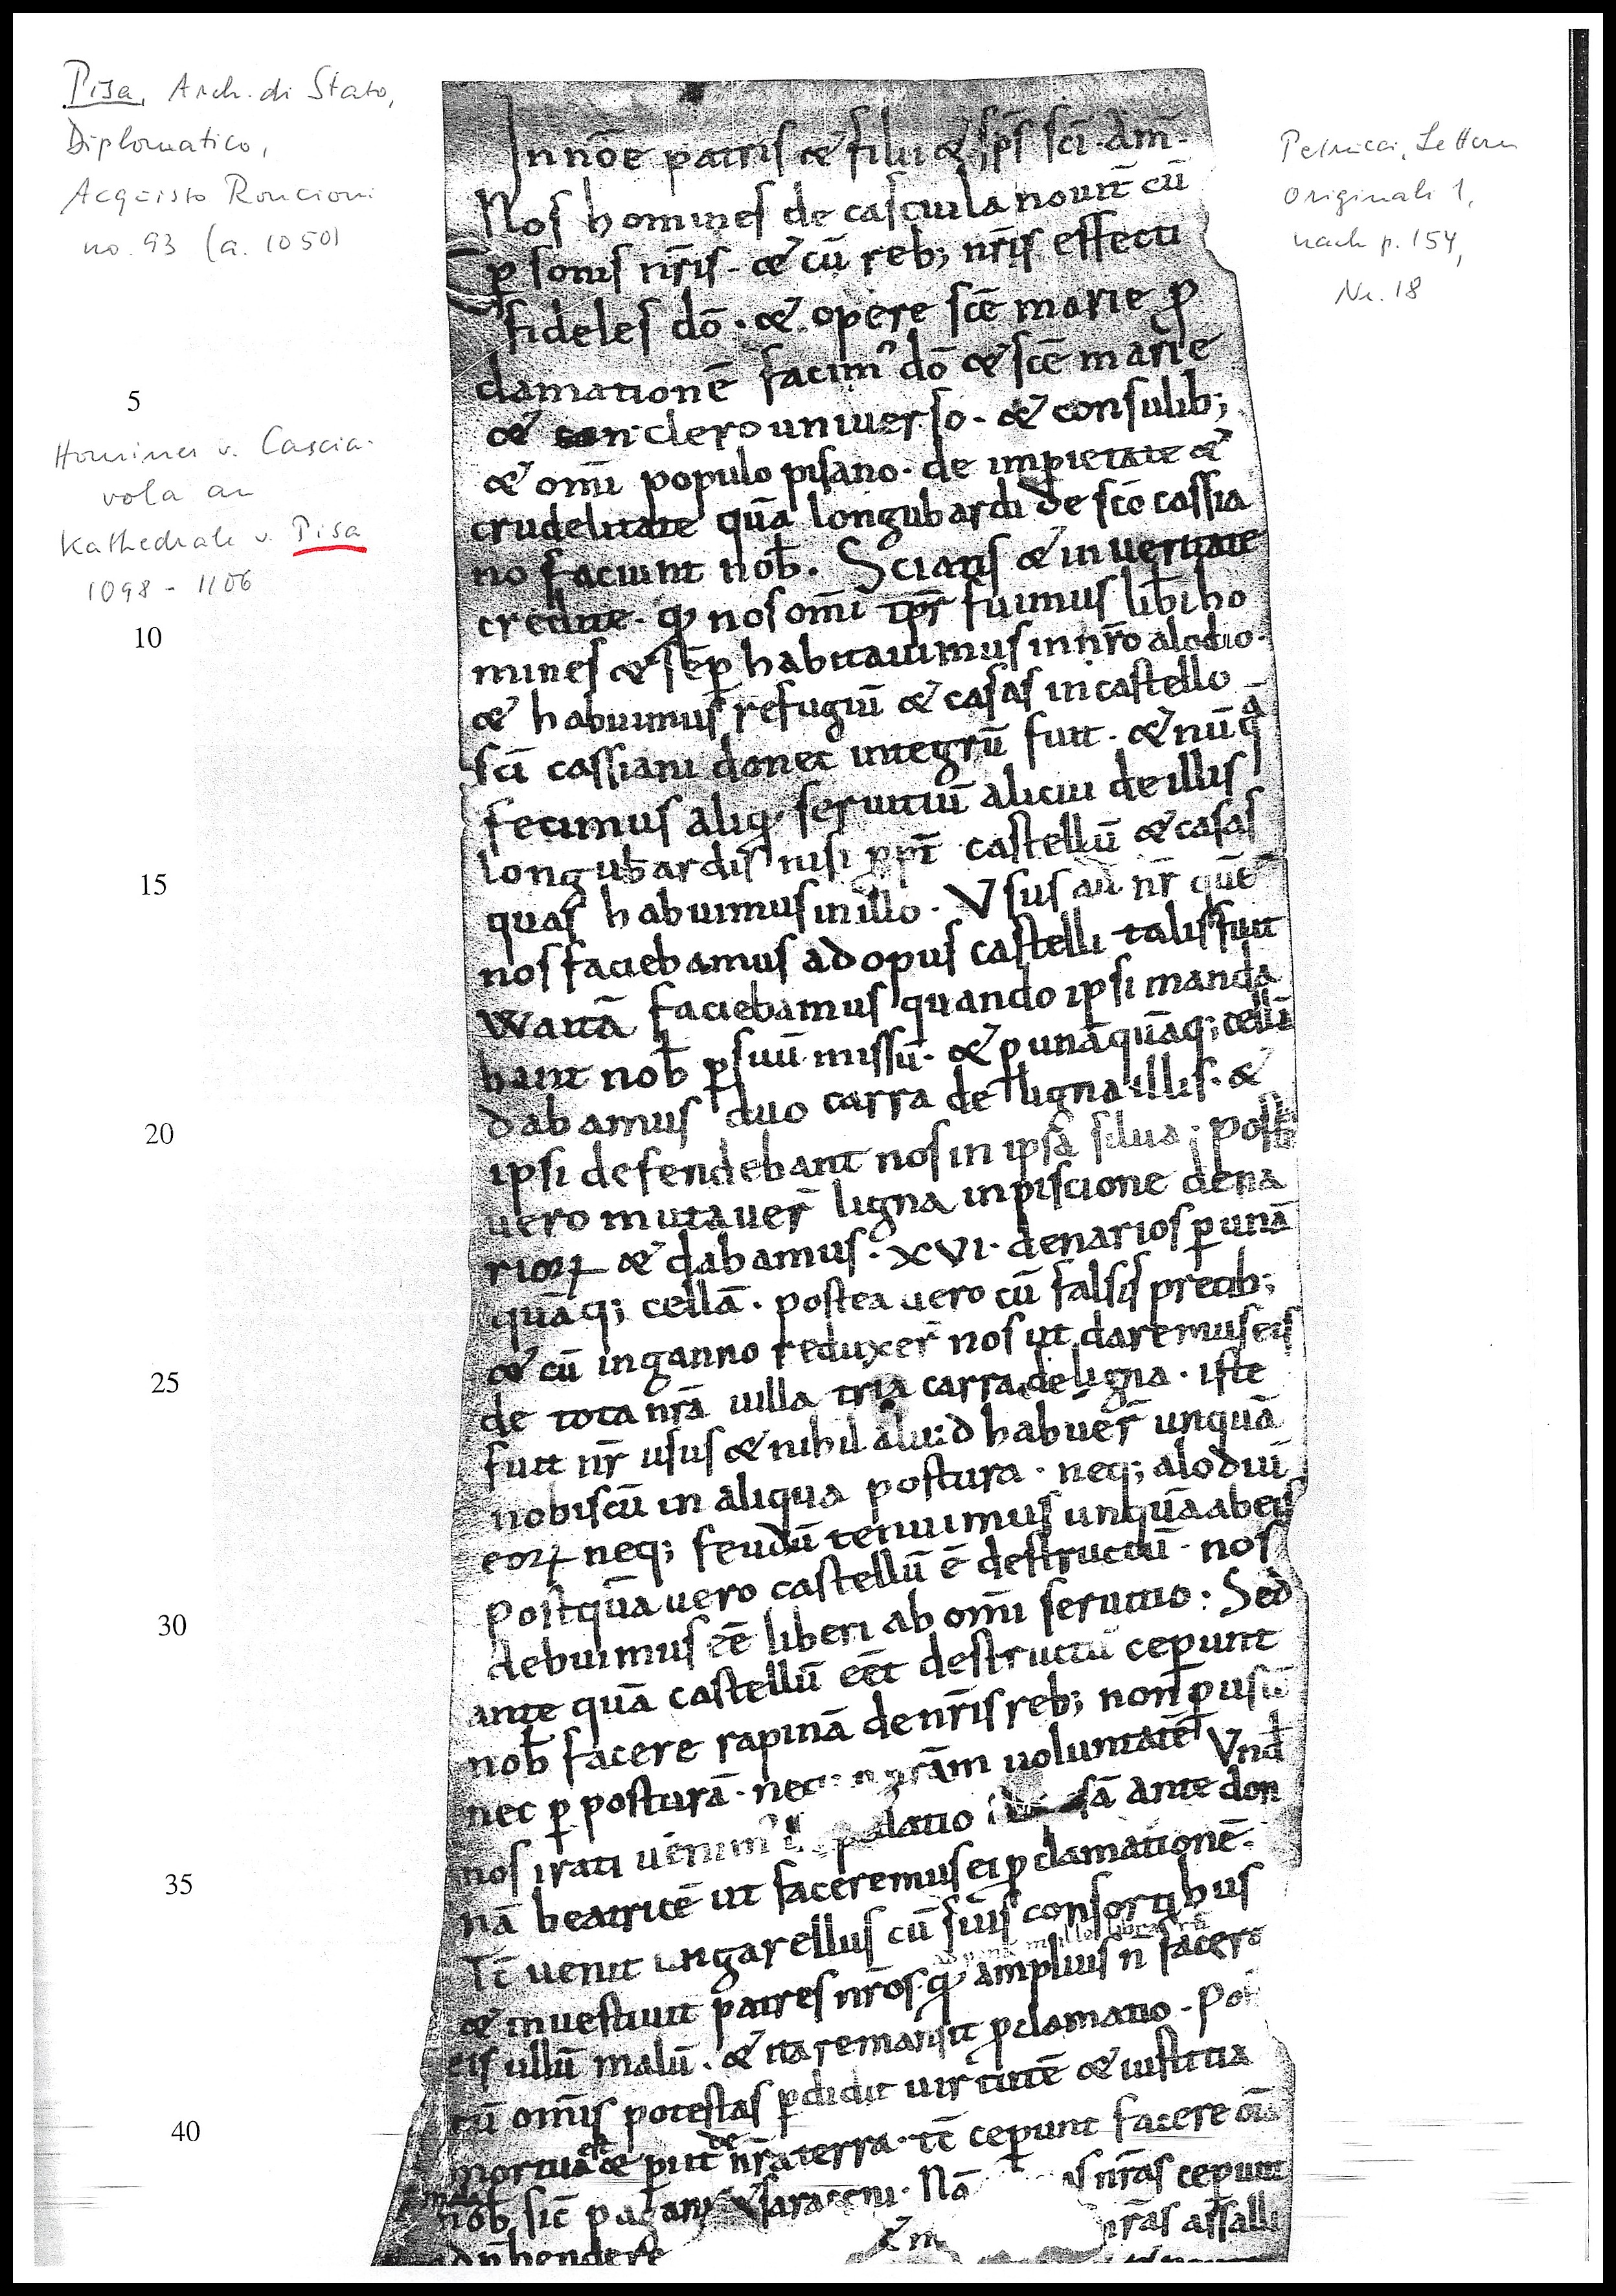 Pisa, Arch. di Stato,
Diplomatico,
Acquisto Roncioni
no. 93 (a. 1050)
Petrucci, Lettere
Originali 1,
nach p. 154,
Nr. 18
Homines v. Cascia-
vola an
Kathedrale v. Pisa
1098 - 1106
5
10
15
20
25
30
35
40
In nōe patris & filii & sp̄s sc̄i am̄
Nos homines de casciula nouit̄ cū
p̱sonis nr̄is · & cū reb; nr̄is effecti
fideles dō · & opere sc̄e marie ꝓ
clamationē facim᾽ dō & sc̄e marie
& clero uniuerso · & consulib;
& om̄i populo pisano · de impietate &
crudelitate quā longubardi de sc̄o cassia
no faciunt nob̄ · Sciatis & in ueritate
credite · qđ nos om̄i tp̄r fuimus lib̄i ho
mines & sēp̱ habitauimus in nr̄o alodio ·
& habuimus refugiū & casas in castello
sc̄i cassiani donec integrū fuit · & nū qā
fecimus aliqđ seruitiū alicui de illis
longubardis nisi ꝓpt̄ castellū & casas
quas habuimus in illo · Vsus aū nr̄ quē
nos faciebamus ad opus castelli talis fuit
Waitā faciebamus quando ipsi manda
bant nob̄ p̱ suū missū · & p̱ unāquāq; cellā
dabamus duo carra de ligna illis · &
ipsi defendebant nos in ipsa silua ; post
uero mutauer̄ ligna in piscione dena
rioꝝ & dabamus · XVI · denarios p̱ unā
quāq; cellā · postea uero cū falsis precib;
& cū inganno reduxer̄ nos ut daremus eis
de tota nr̄a uilla tria carra de ligna · iste
fuit nr̄ usus & nihil aliud habuer̄ unquā
nobiscū in aliqua postura · neq; alodiū
eoꝝ neq; feudū tenuimus unquā ab eis
Postquā uero castellū ē destructū · nos
debuimus eē liberi ab om̄i seruitio : Sed
ante quā castellū eēt destructū cep̱unt
nob̄ facere rapinā de nr̄is reb; non p̱ usū
nec p̱ posturā · nec nr̄ām uoluntatē Vnđ
nos irati uenim᾽ palatio ante don
nā beatricē ut faceremus ei ꝓclamationē ·
Tc̄ uenit ungarellus cū suis consortibus
& inuestiuit patres nr̄os qđ amplius n̄ facer&
eis ullū malū · & ita remansit ꝓclamatio · Pos
cū om̄is potestas p̱didit uirtutē & iustitia
mortua est & p̱iit de nr̄a terra · tc̄ cep̱unt facere oīa
nob̄ sic̄ pagani & saraceni · Nā nr̄as cep̱unt
nr̄as assalli